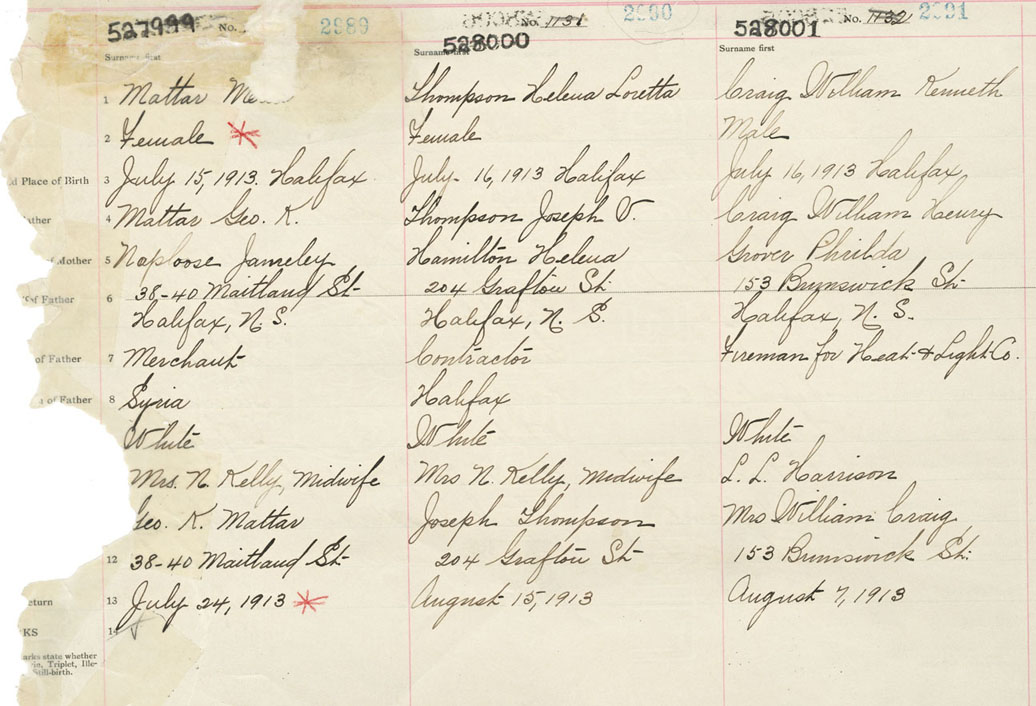 527999 No. 2989
Surname first
1 Mattar
2 Female
d Place of Birth 3 July 15, 1913. Halifax
ather 4 Mattar Geo. K.
of Mother 5 Naploose Jameley
of Father 6 38-40 Maitland St.
Halifax, N. S.
of Father 7 Merchant
of Father 8 Syria
White
Mrs. N. Kelly, Midwife
Geo. K. Mattar
12 38-40 Maitland St.
eturn 13 July 24, 1913
KS 14
arks state whether
in, Triplet, Ille-
Still-birth.
528000 No. 1131 2990
Surname first
Thompson Helena Loretta
Female
July 16, 1913 Halifax
Thompson Joseph V.
Hamilton Helena
204 Grafton St.
Halifax, N. S.
Contractor
Halifax
White
Mrs N. Kelly, Midwife
Joseph Thompson
204 Grafton St
August 15, 1913
528001 No. 1132 2991
Surname first
Craig William Kenneth
Male
July 16, 1913 Halifax
Craig William Henry
Grover Philda
153 Brunswick St.
Halifax, N. S.
Fireman for Heat & Light Co.
White
L. L. Harrison
Mrs William Craig
153 Brunswick St.
August 7, 1913